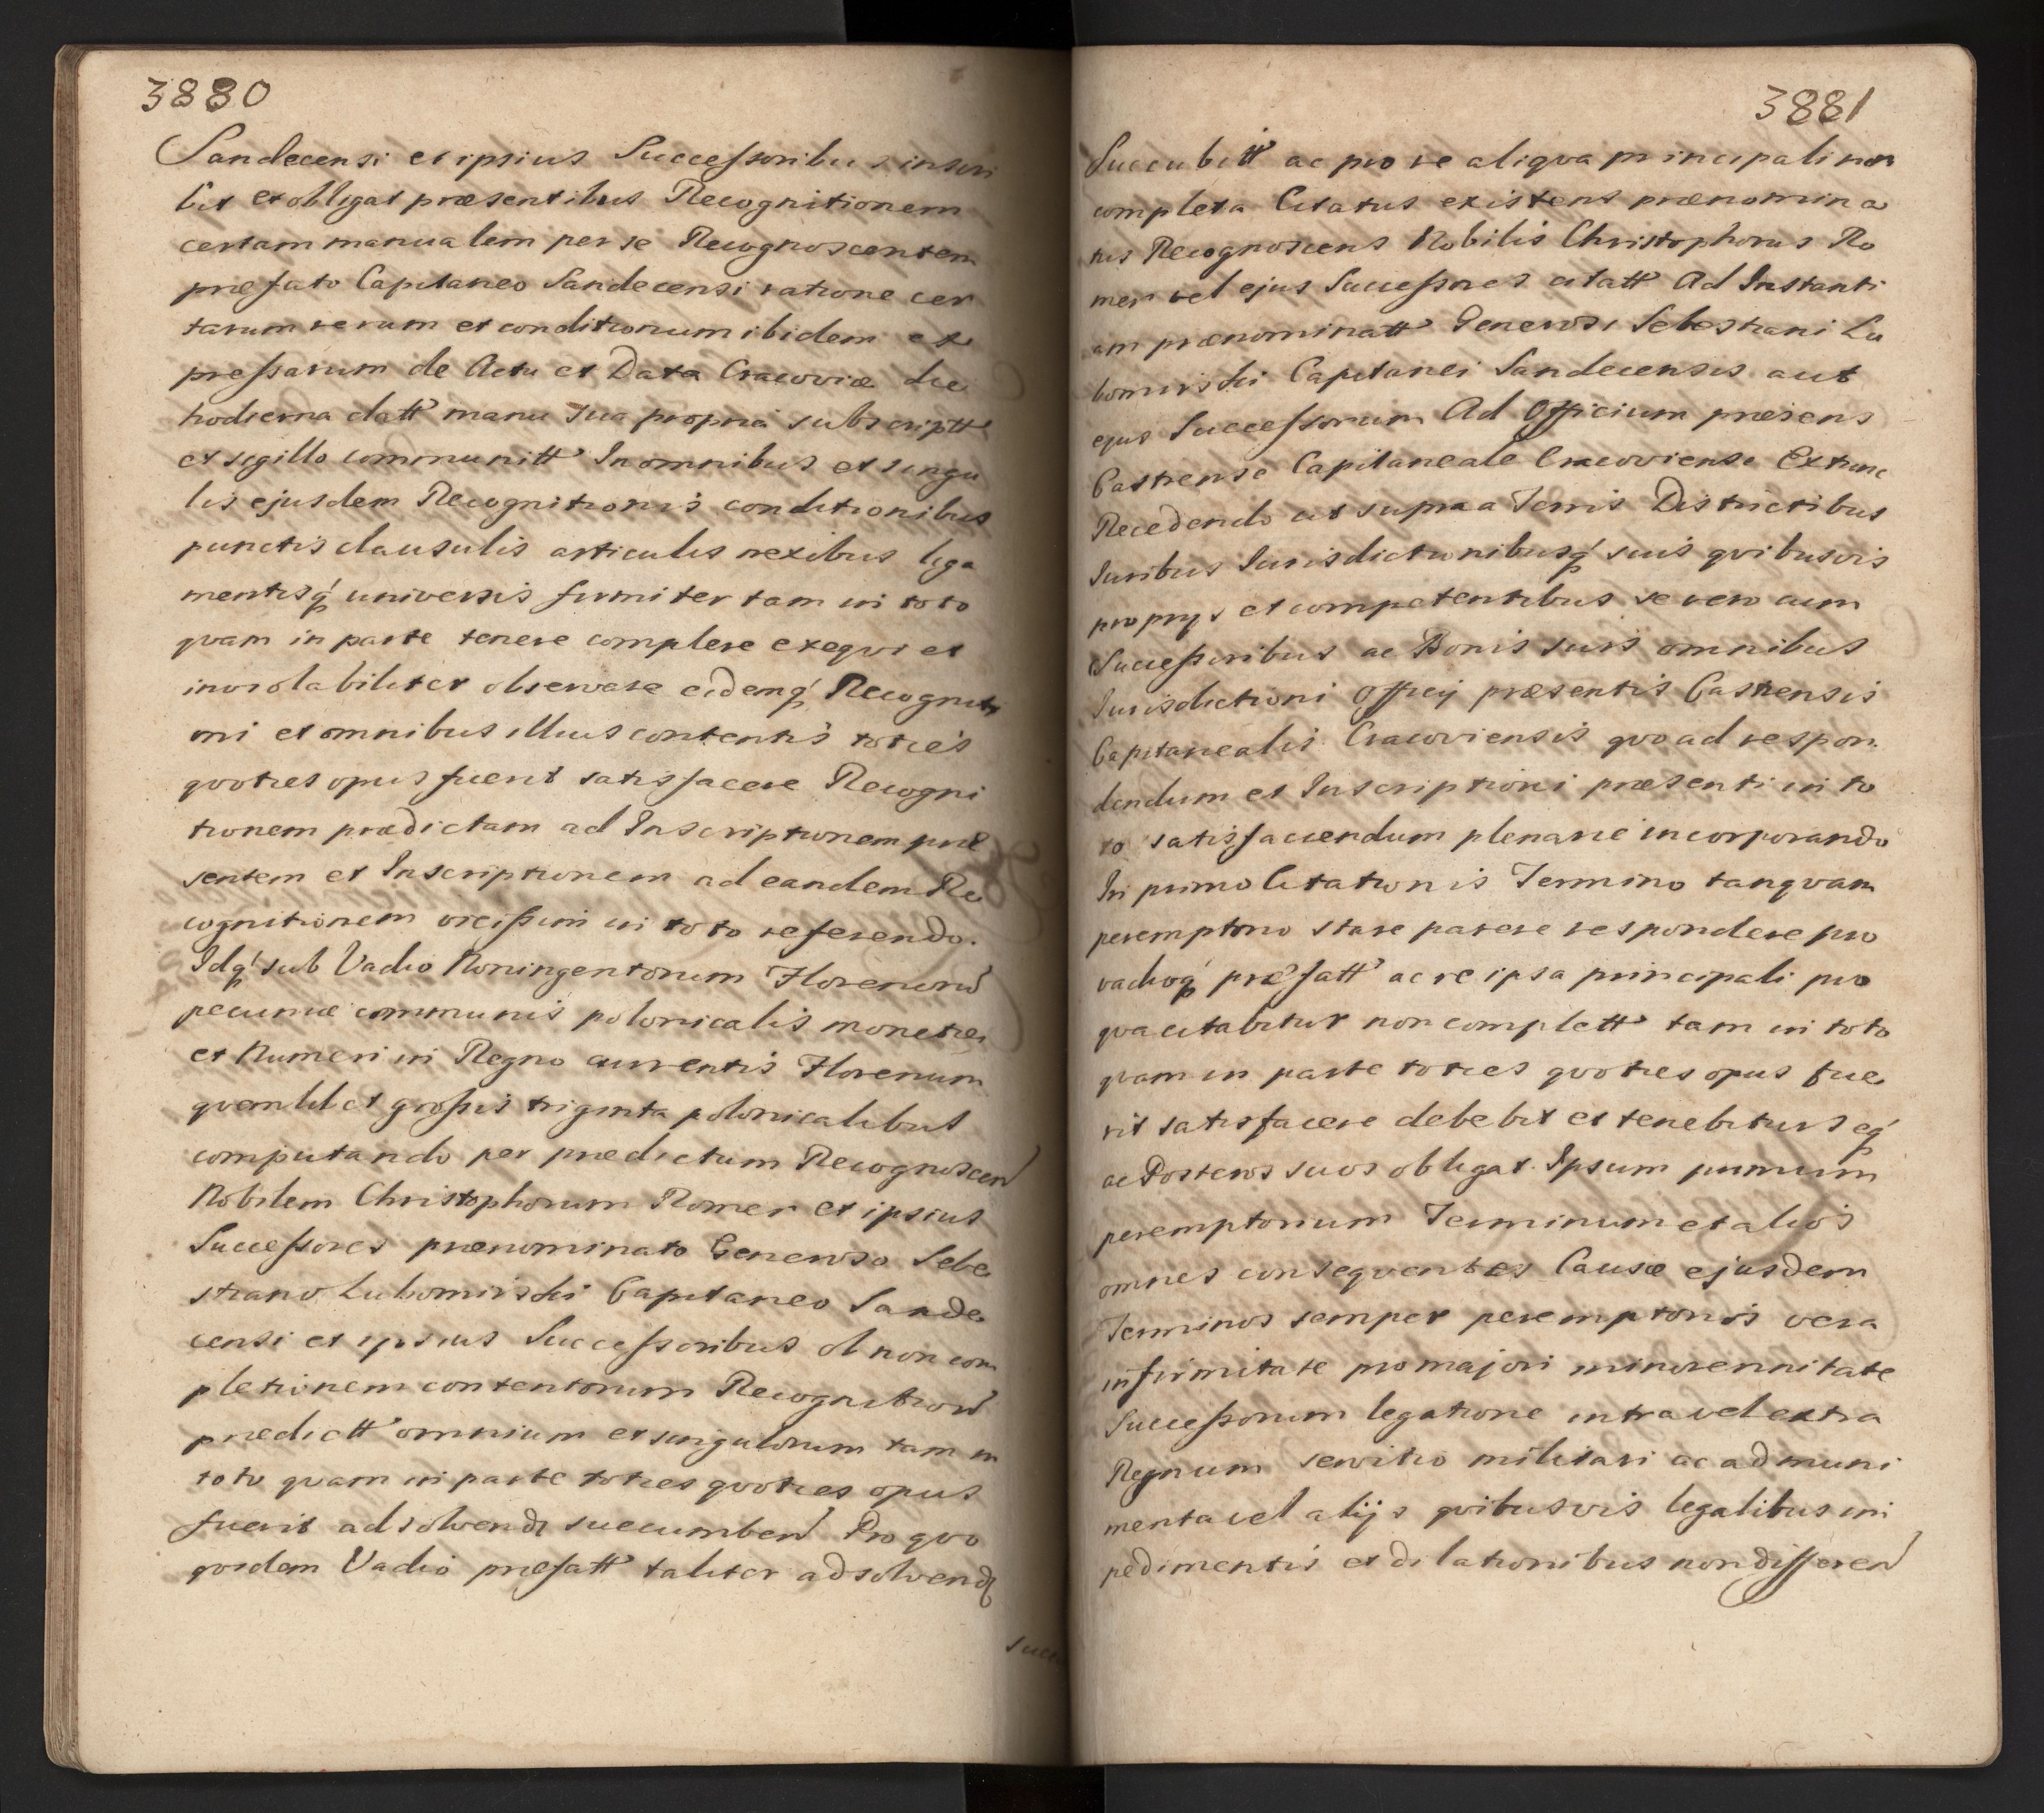 3880
Sandecensi et ipsius Successoribus inscri
bit et obligat præsentibus Recognitionem
certam manualem per se Recognoscentem
præfato Capitaneo Sandecensi ratione cer
tarum rerum et conditionum ibidem ex
pressarum de Actu et Data Cracoviæ die
hodierna datt manu sua propria subscriptt
et sigillo communitt In omnibus et singu
lis ejusdem Recognitionis conditionibus
punctis clausulis articulis nexibus liga
mentisq́ universis firmiter tam in toto
qvam in parte tenere complere exeqvi et
inviolabiliter observare eidemq́ Recogniti
oni et omnibus illius contentis toties
qvoties opus fuerit satisfacere Recogni
tionem prædictam ad Inscriptionem præ
sentem et Inscriptionem ad eandem Re
cognitionem vicissim in toto referendo.
Idq́ sub Vadio Noningentorum Florenorū
pecuniæ communis polonicalis monetæ
et Numeri in Regno currentis Florenum
qvemlibet grossis triginta polonicalibus
computando per prædictum Recognoscen
Nobilem Christophorum Romer et ipsius
Successores prænominato Generoso Seba
stiano Lubomirski Capitaneo Sande
censi et ipsius Successoribus ob non com
pletionem contentorum Recognition
prædictt omnium et singulorum tam in
toto qvam in parte toties qvoties opus
fuerit adsolvend succumben Pro qvo
qvidem Vadio præfatt taliter adsolvend
succu
3881
Succubitt ac pro re aliqva principali non
completa Citatus existens prænomina
tus Recognoscens Nobilis Christophorus Ro
mer vel ejus Successores citatt Ad Instanti
am prænominatt Generosi Sebestiani Lu
bomirski Capitanei Sandecensis aut
ejus Successorum Ad Officium præsens
Castrense Capitaneale Cracoviense Extunc
Recedendo ut supra a Terris Districtibus
Iuribus Iurisdictionibusq́ suis qvibusvis
proprijs et competentibus se vero cum
Successoribus ac Bonis suis omnibus
Iurisdictioni Officij præsentis Castrensis
Capitanealis Cracoviensis qvoad respon
dendum et Inscriptioni præsenti in to
to satisfaciendum plenarie incorporando
In primo Citationis Termino tanqvam
peremptorio stare parere respondere pro
vadioq́ præfatt ac re ipsa principali pro
qva citabitur non complett tam in toto
qvam in parte toties qvoties opus fue
rit satisfacere debebit et tenebitur seq́
ac Posteros suos obligat. Ipsum primum
peremptorium Terminum et alios
omnes conseqventes Causæ ejusdem
Terminos semper peremptorios vera
infirmitate pro majori minorennitate
Successorum legatione intra vel extra
Regnum servitio militari ac ad muni
menta vel alijs qvibusvis legalibus im
pedimentis et dilationibus non differen